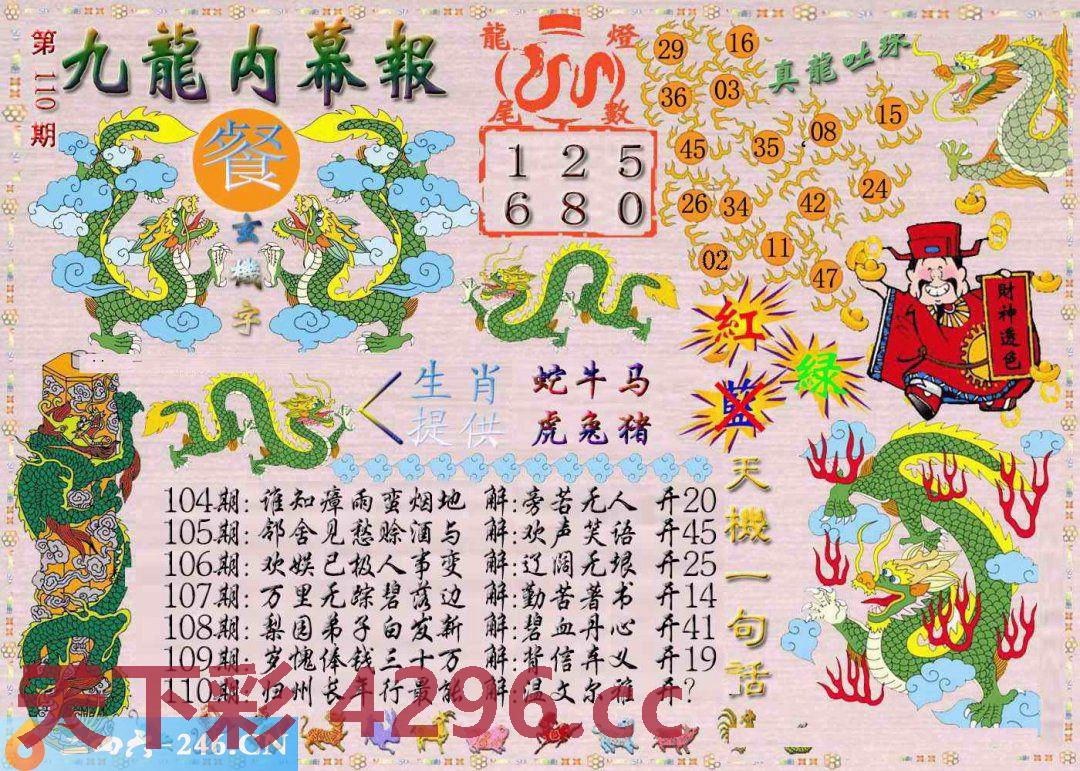 第110期
九龍内幕報
餐
玄機字
龍尾燈數
1 2 5
6 8 0
真龍吐珠
29 16
36 03
45 35 08 15
26 34 42 24
02 11 47
紅
綠
藍
財神透色
生肖提供
蛇牛马
虎兔猪
天機一句话
104期:谁知瘴雨蛮烟地 解:旁苦无人 开20
105期:邻舍见愁赊酒与 解:欢声笑语 开45
106期:欢娱已极人事变 解:辽阔无垠 开25
107期:万里无踪碧落边 解:勤苦著书 开14
108期:梨园弟子白发新 解:碧血丹心 开41
109期:岁愧俸钱三十万 解:背信弃义 开19
110期:归州长年行最能 解:温文尔雅 开?
天下彩 4296.cc
=246.CN